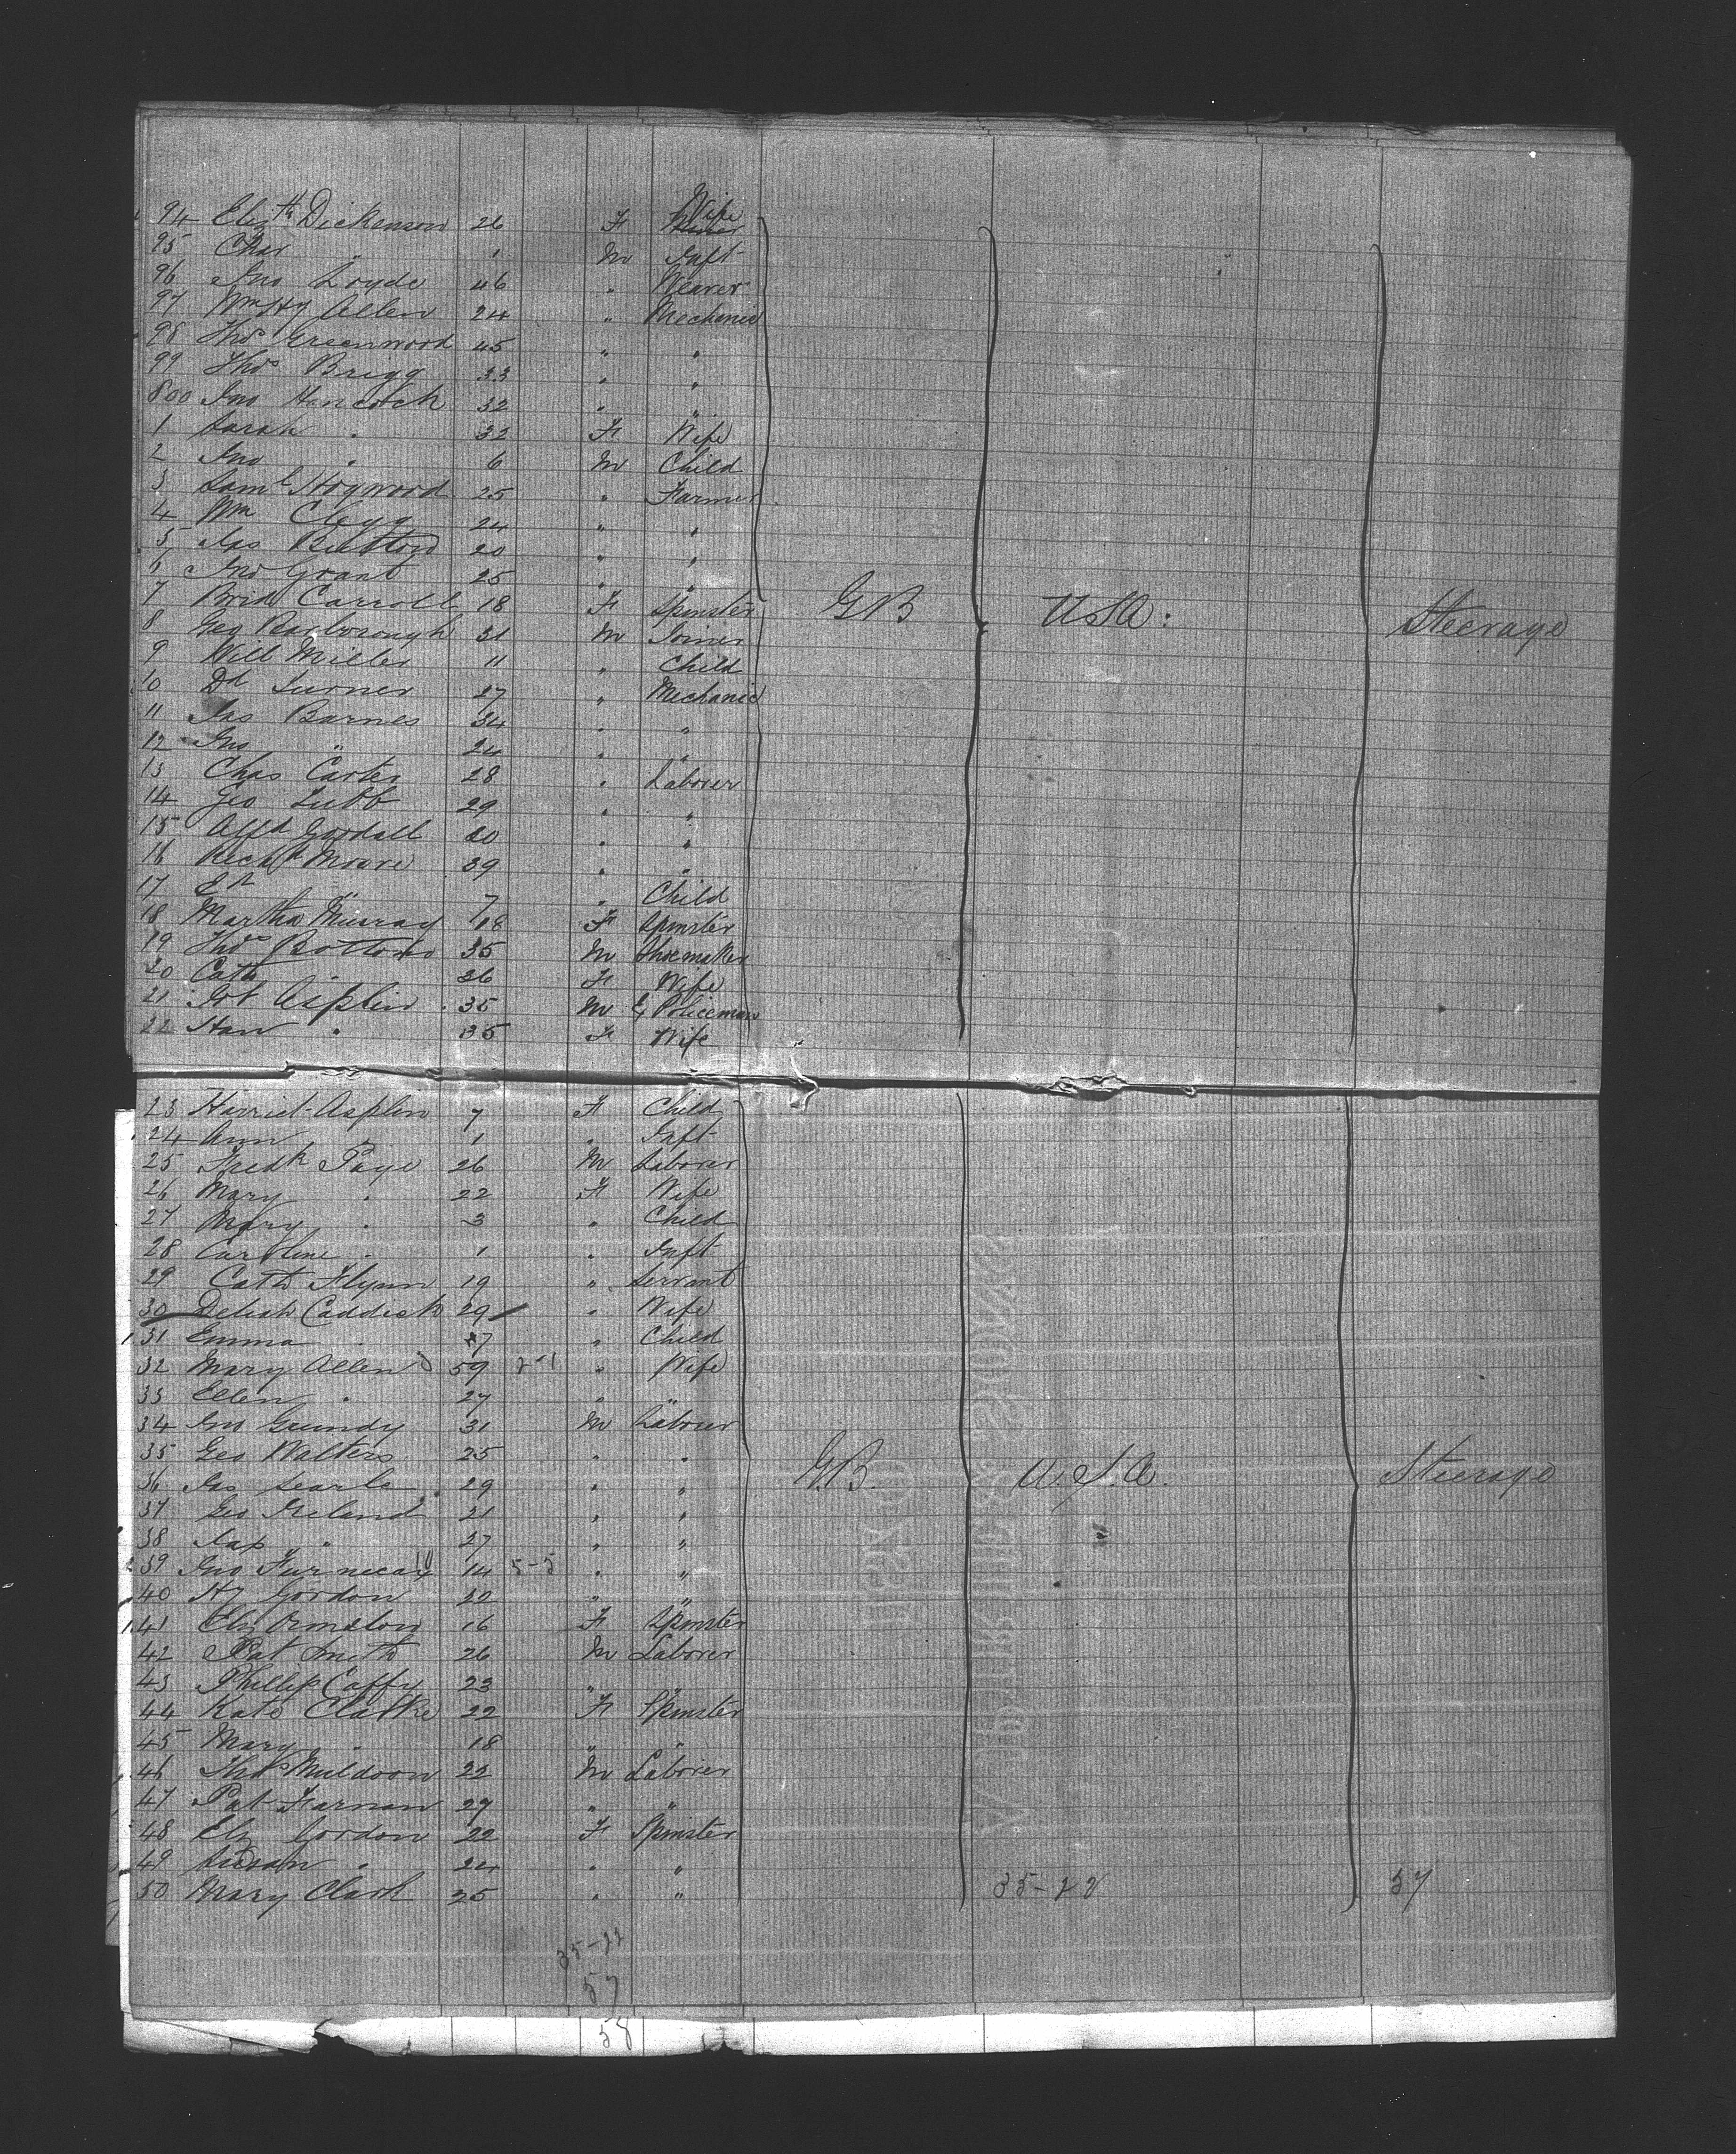 94 Eliz.th Dickenson 26 F Wife
95 Chas " 1 M Inft
96 Jno Loyde 46 " Weaver
97 Wm Hy Allen 24 " Mechanic
98 Thos Greenwood 45 " "
99 Thos Brigg 33 " "
800 Jno Hancock 32 " "
1 Sarah " 32 F Wife
2 Jno " 6 M Child
3 Saml Hogwood 25 " Farmer
4 Wm Clegg 24 " "
5 Jas 20 " "
6 Jno Grant 25 " "
7 Brid Carroll 18 F Spinster
8 Geo Barborough 31 M Joiner
GB USA: Steerage
9 Will Miller 11 " Child
10 Dd Turner 27 " Mechanic
11 Jas Barnes 34 " "
12 Jno " 24 " "
13 Chas Carter 28 " Laborer
14 Geo Tubb 29 " "
15 Alfd Goodall 20 " "
16 Richd Moore 39 " "
17 Ed " 7 " Child
18 Martha Murray 18 F Spinster
19 Thos Bottoms 35 M Shoemaker
20 Cath " 36 F Wife
21 Asplin 35 M Policeman
22 Han " 35 F Wife
23 Harriet Asplin 7 F Child
24 Ann " 1 " Inft
25 Fredk Page 26 M Laborer
26 Mary " 22 F Wife
27 Mary " 3 " Child
28 Caroline " 1 " Inft
29 Cath Flynn 19 " Servant
30 Delish Caddick 29 " Wife
31 Emma " 7 " Child
32 Mary Allen 59 " Wife
33 Ellen " 27 " "
34 Jno Grundy 31 M Laborer
35 Geo Walters 25 " "
36 Jas Searle 29 " "
G.B. U.S.A. Steerage
37 Geo Ireland 21 " "
38 Jas " 27 " "
39 Jno 14 5-5 " "
40 Hy Gordon 22 " "
41 Eliz Ormston 16 F Spinster
42 Pat Smith 26 M Laborer
43 Phillip Caffy 23 " "
44 Kate Clarke 22 F Spinster
45 Mary " 18 " "
46 Thos Muldoon 22 M Laborer
47 Pat Farnan 27 " "
48 Eliz Gordon 22 F Spinster
49 Susan " 24 " "
50 Mary Clark 25 " "
35-22 57
35-22
57
58